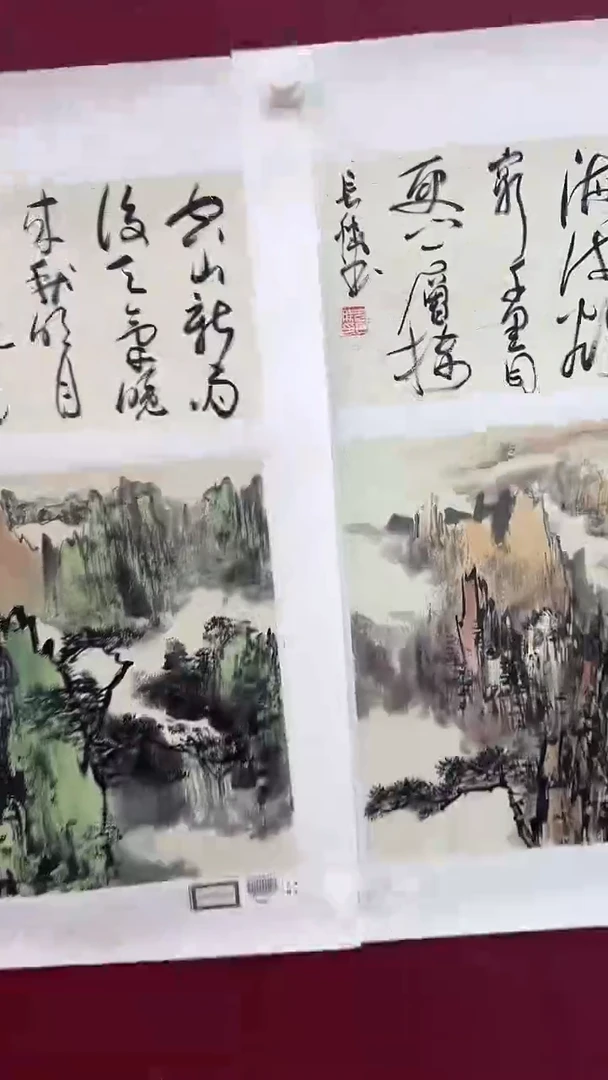 海流欲
窮千里目
更上一層樓
空山新雨
後天氣晚
來秋明月